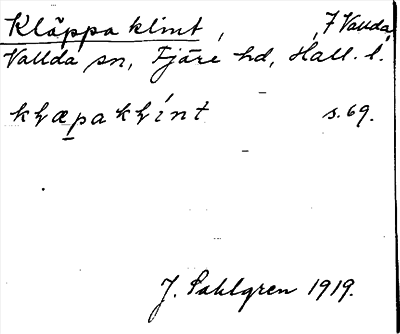 Kläppa klint, 7 Vallda,
Vallda sn, Fjäre hd, Hall. l.
kḷæp̱akḷínt s. 69.
J. Sahlgren 1919.